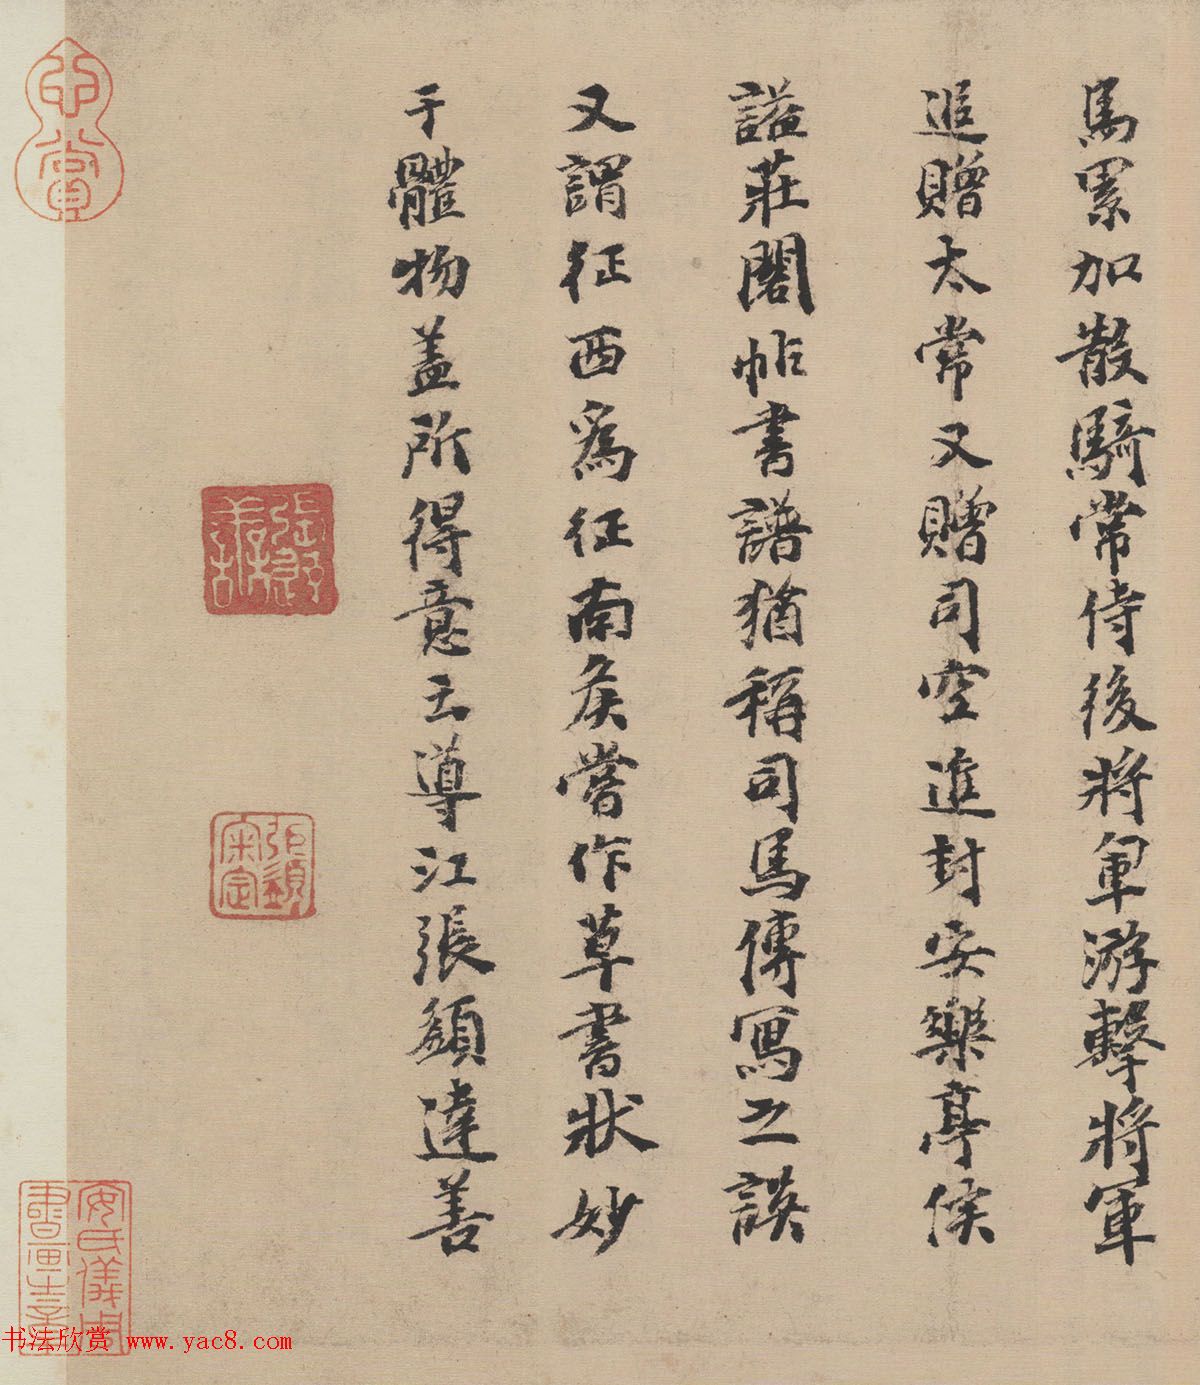 馬累加散騎常侍後將軍游擊將軍
追贈太常又贈司空進封安樂亭侯
謚莊閣帖書譜猶稱司馬傳寫之誤
又謂征西為征南矦嘗作草書狀妙
于體物盖所得意云導江張頠達善
安氏儀周書畫之章
书法欣赏 www.yac8.com